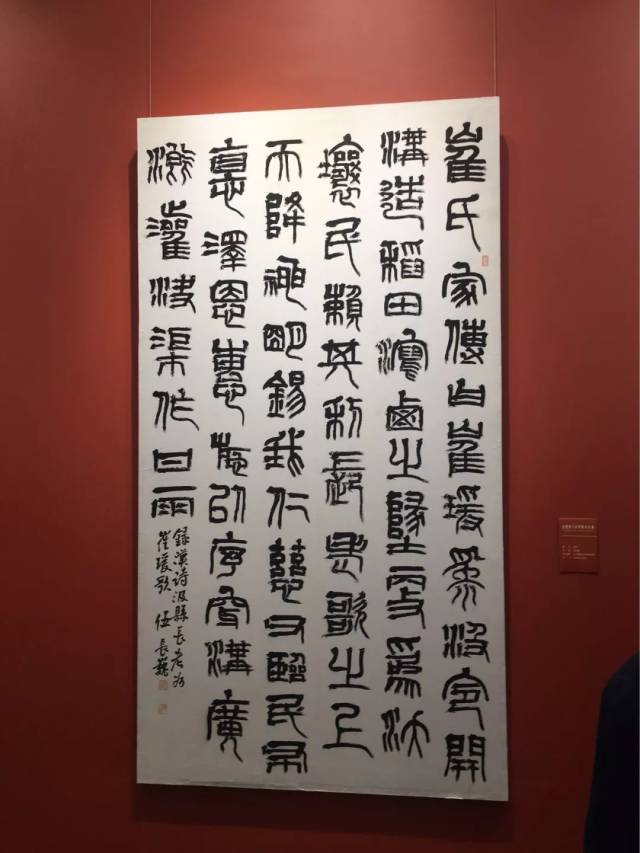 崔氏家傳曰崔瑗為汲令開
溝造稻田瀉鹵之墬更為沃
壤民賴其利長老歌之上
天降神明錫我仁慈父臨民布
悳澤恩惠施以序穿溝廣
溉灌決渠作甘雨
錄漢詩汲縣長老為
崔瑗歌 伍長